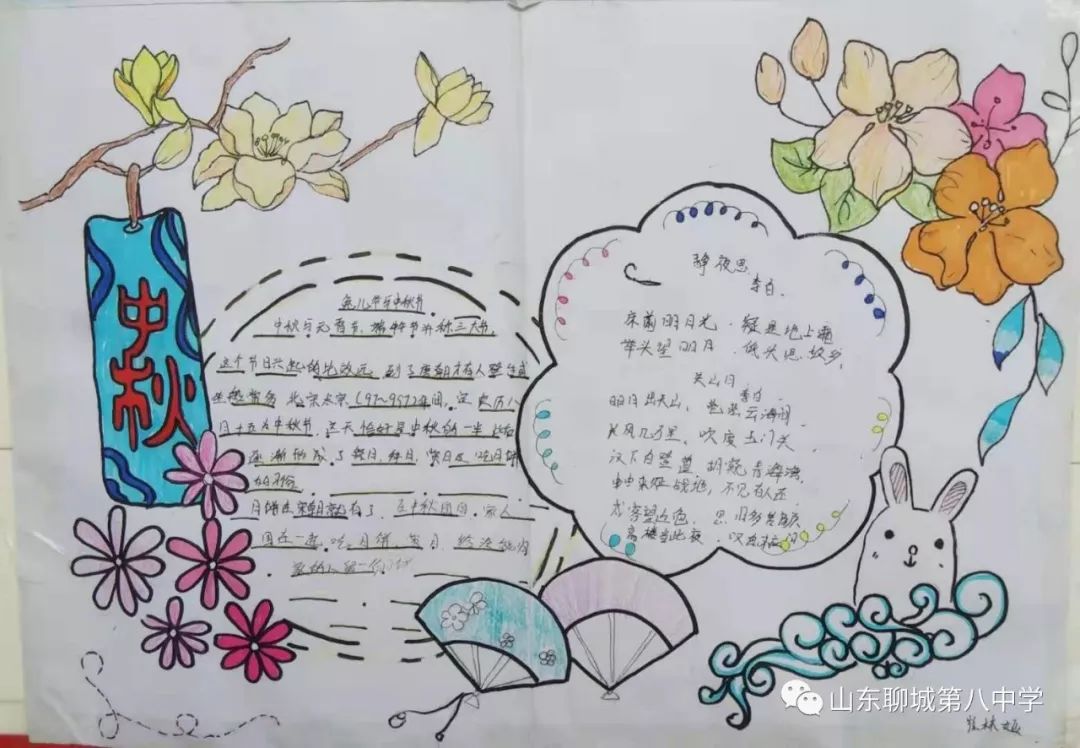 中秋
兔儿节与中秋节
中秋与元宵节、端午节并称三大节。
这个节日兴起的比较远 到了唐朝才有人
北宋太宗 年间, 定农历八
月十五为中秋节, 这天恰好是中秋的一半 此后
逐渐形成了祭月、拜月、赏月及吃月饼
的习俗
月饼在宋朝就有了, 在中秋团圆, 家人
围在一起, 吃月饼, 赏月,
静夜思
李白.
床前明月光, 疑是地上霜
举头望明月, 低头思故乡,
关山月
李白.
明月出天山, 苍茫云海间
长风几万里, 吹度玉门关
汉下白登道, 胡窥青海湾,
由来征战地, 不见有人还
戍客望边色, 思归多苦颜
高楼当此夜, 叹息
山东聊城第八中学